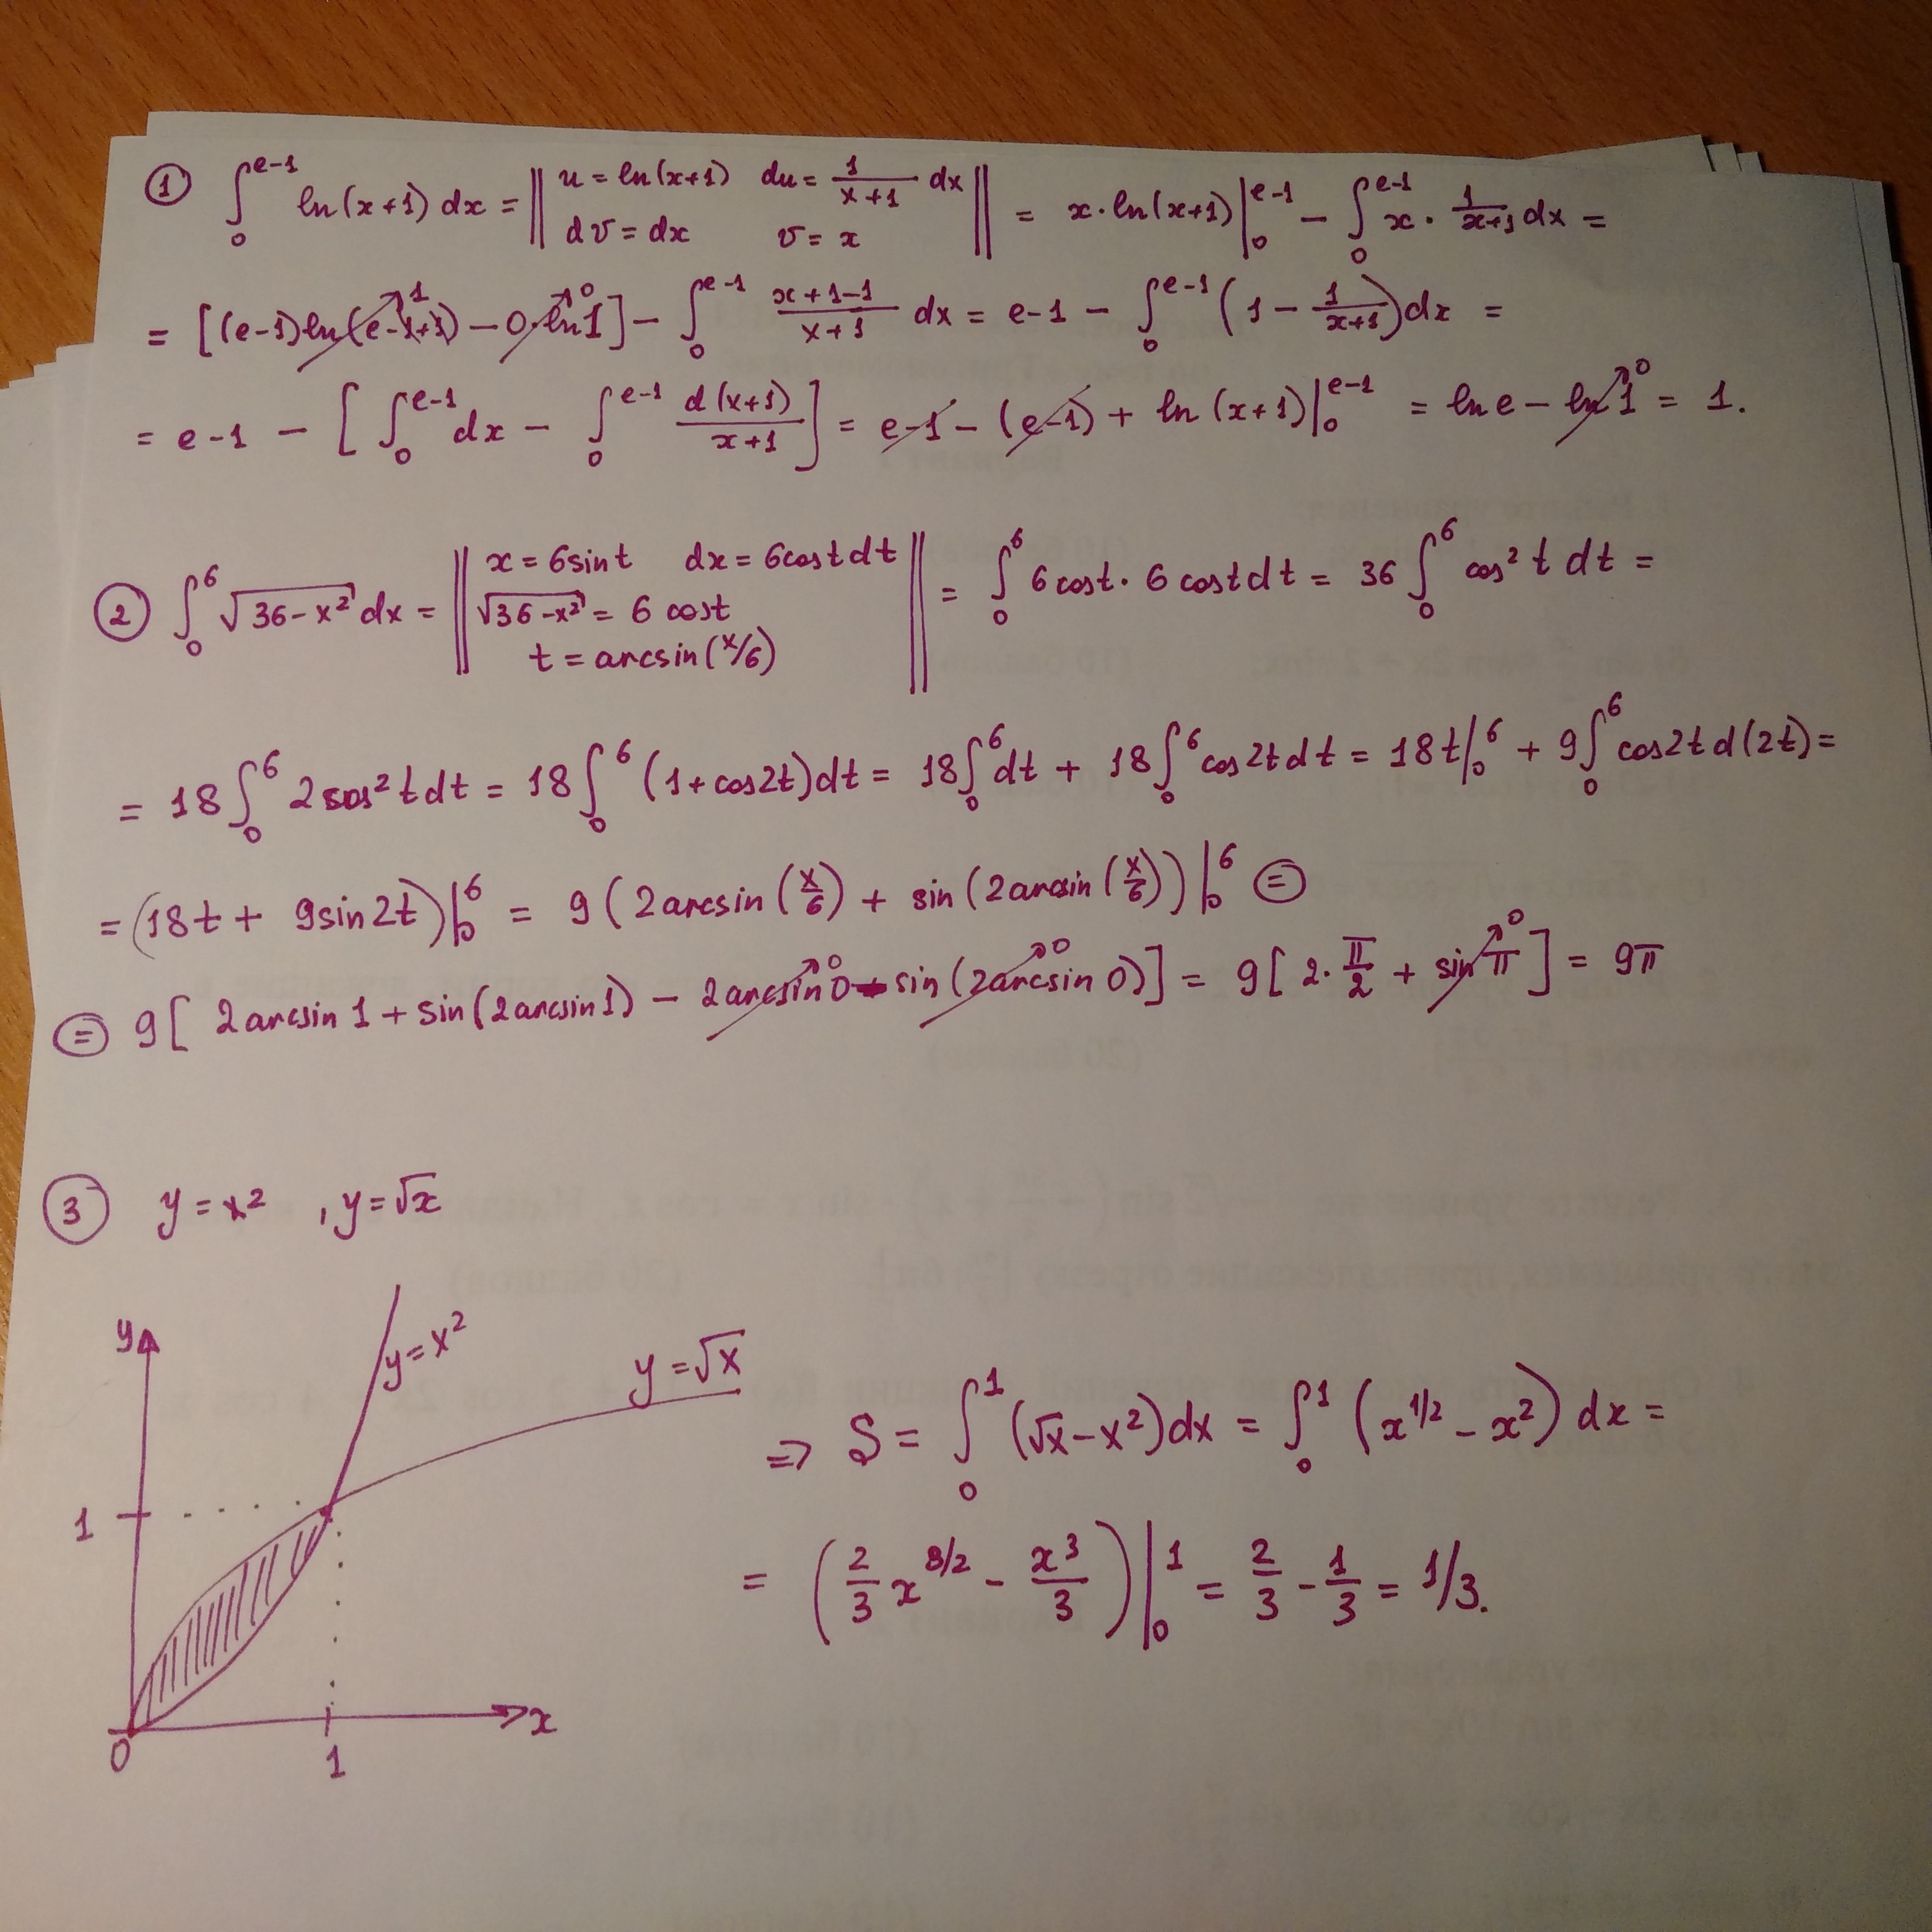 ① ∫₀^{e-1} ln(x+1) dx = ‖ u = ln(x+1) du = 1/(x+1) dx dv = dx v = x ‖ = x·ln(x+1)|₀^{e-1} − ∫₀^{e-1} x · 1/(x+1) dx =
= [(e-1)ln(e-1+1)↗1 − 0·ln1↗0] − ∫₀^{e-1} (x+1-1)/(x+1) dx = e-1 − ∫₀^{e-1} (1 − 1/(x+1))dx =
= e-1 − [∫₀^{e-1} dx − ∫₀^{e-1} d(x+1)/(x+1)] = e-1 − (e-1) + ln(x+1)|₀^{e-1} = ln e − ln1↗0 = 1.
② ∫₀^6 √(36-x²) dx = ‖ x = 6sint dx = 6costdt √(36-x²) = 6 cost t = arcsin(x/6) ‖ = ∫₀^6 6cost · 6costdt = 36 ∫₀^6 cos²t dt =
= 18∫₀^6 2cos²tdt = 18∫₀^6 (1+cos2t)dt = 18∫₀^6 dt + 18∫₀^6 cos2tdt = 18t|₀^6 + 9∫₀^6 cos2td(2t) =
= (18t + 9sin2t)|₀^6 = 9(2arcsin(x/6) + sin(2arcsin(x/6))|₀^6 ⊜
⊜ 9[2arcsin1 + sin(2arcsin1) − 2arcsin0↗0 - sin(2arcsin0)↗0] = 9[2·π/2 + sinπ↗0] = 9π
③ y = x² , y = √x
y
y = x²
y = √x
⇒ S = ∫₀^1 (√x − x²)dx = ∫₀^1 (x^{1/2} − x²) dx =
1
= (2/3 x^{3/2} − x³/3)|₀^1 = 2/3 − 1/3 = 1/3.
x
0
1